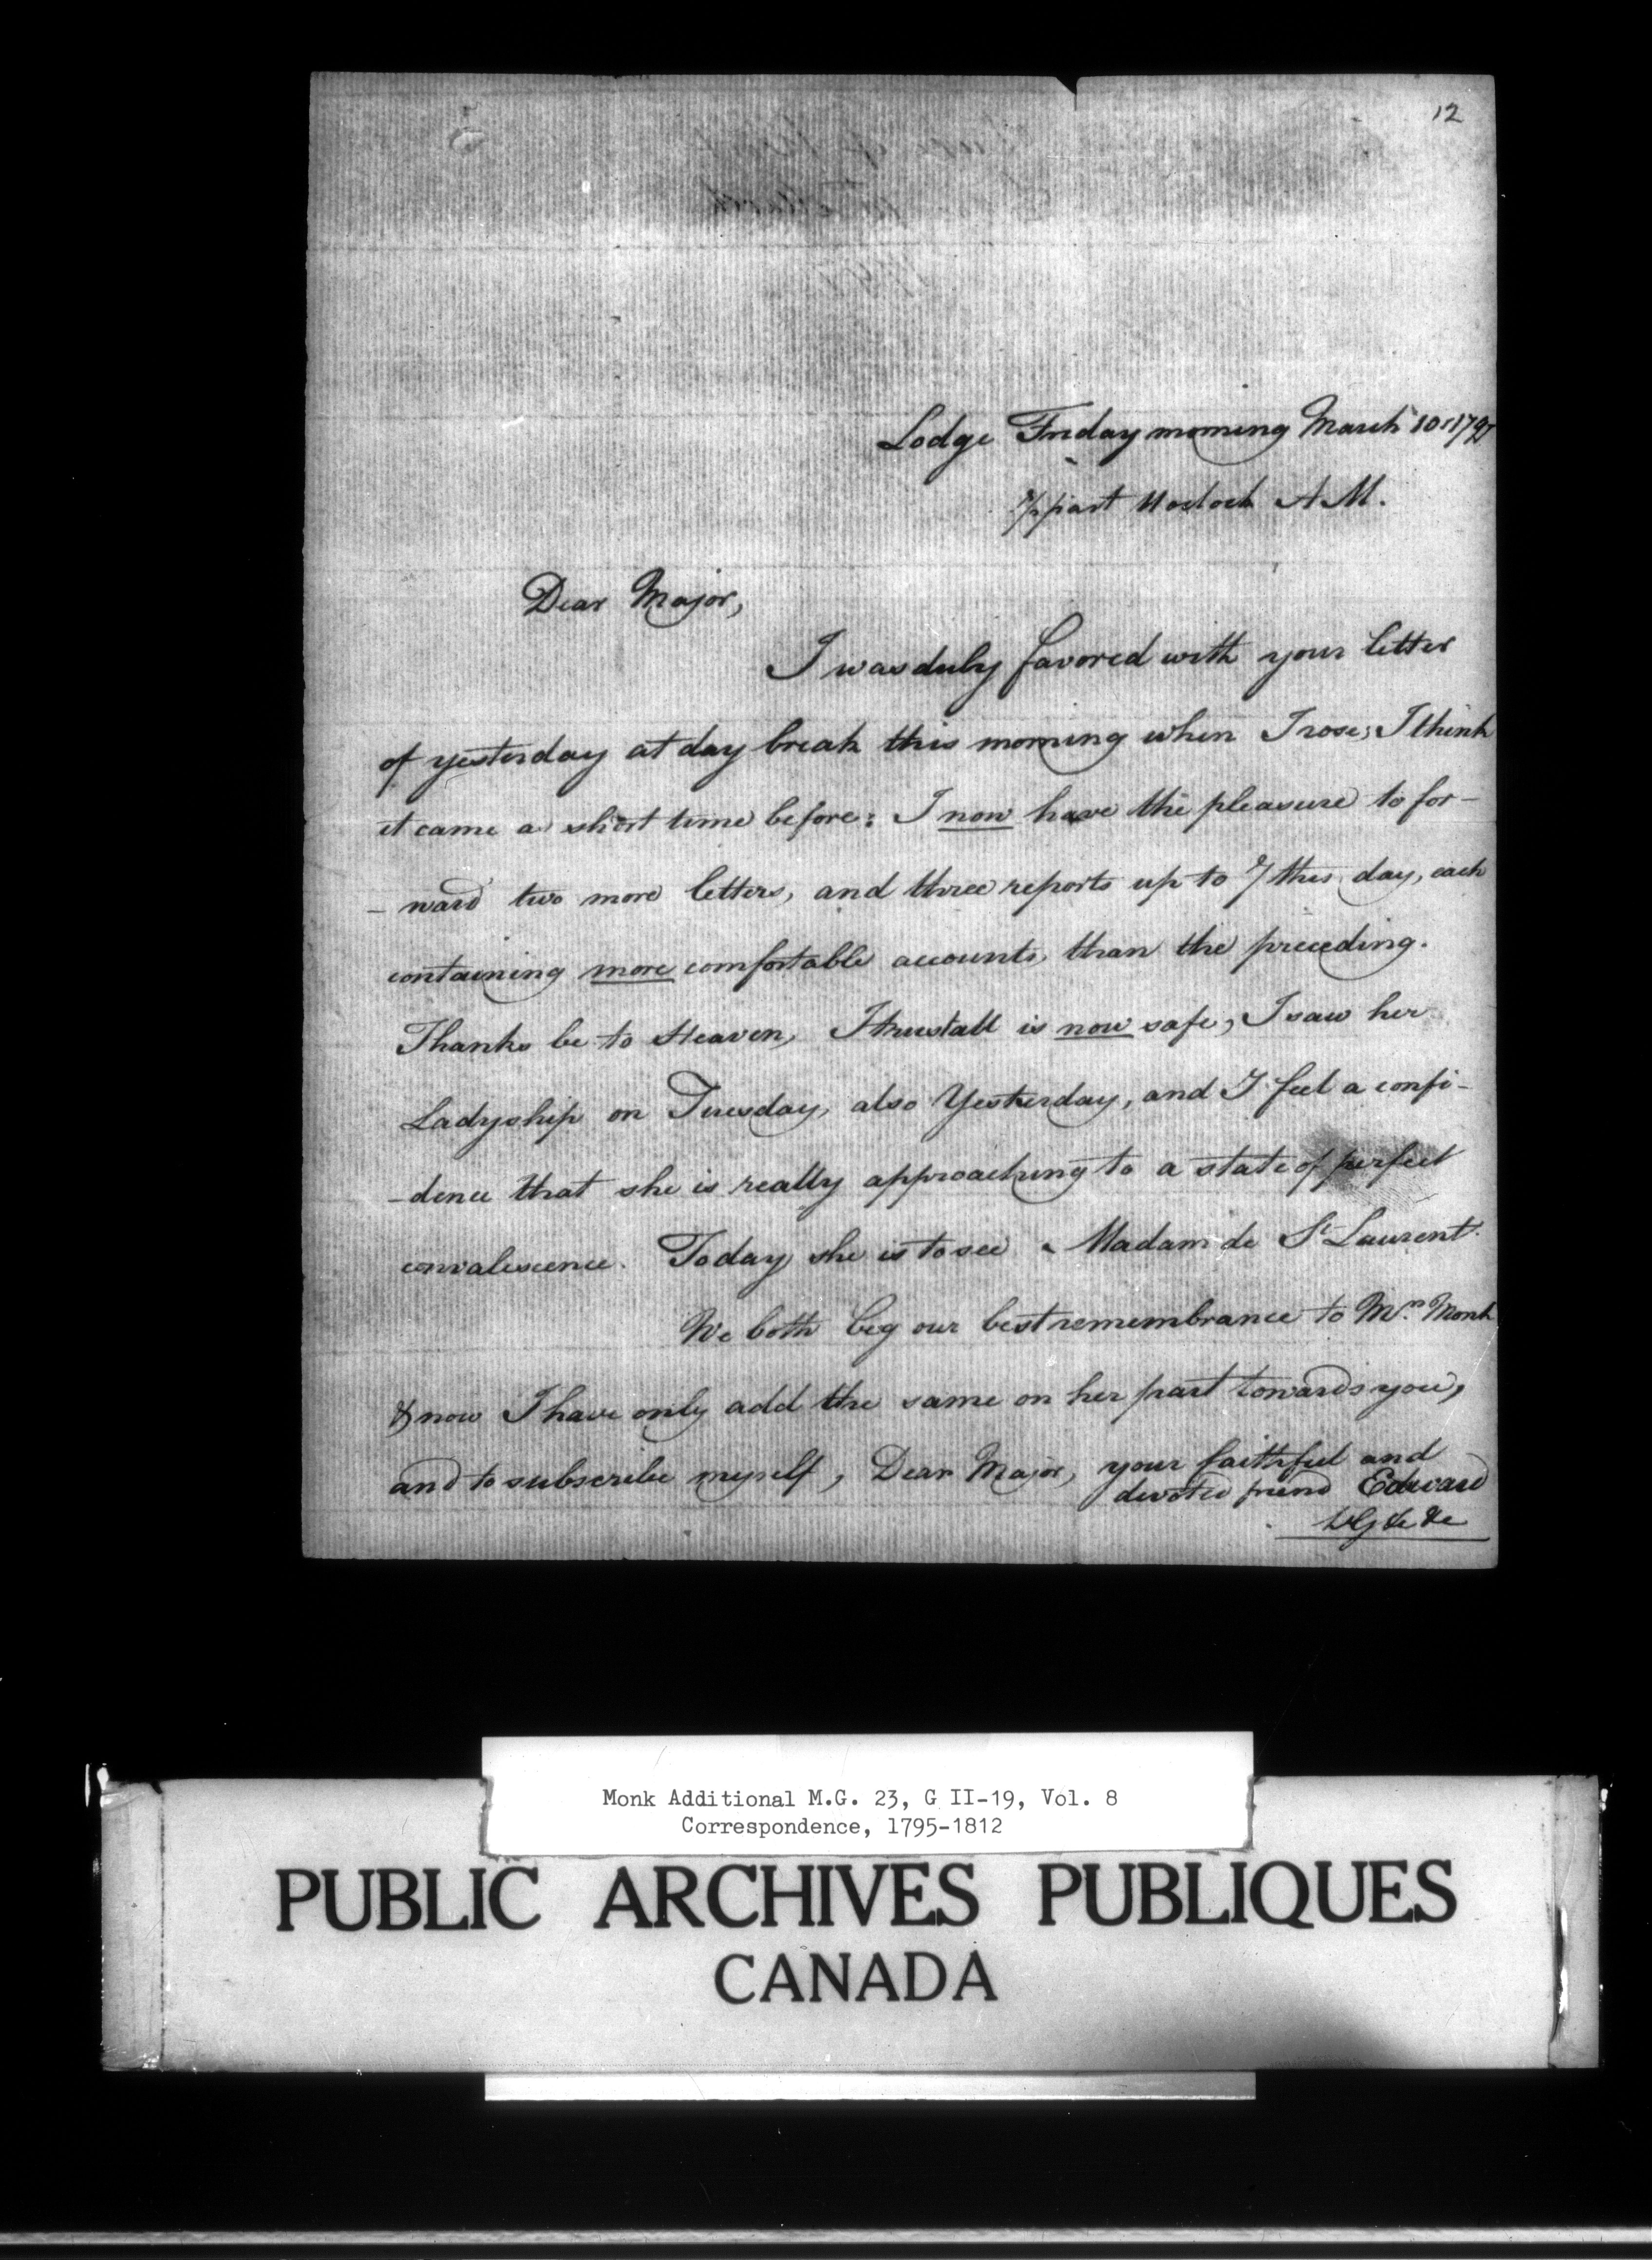 12
Lodge Friday morning March 10 1797
½ past 11 oclock A M.
Dear Major,
I was duly favored with your letter
of yesterday at day break this morning when I rose; I think
it came a short time before: I now have the pleasure to for-
-ward two more letters, and three reports up to 7 this day, each
containing more comfortable accounts, than the preceding.
Thanks be to Heaven, I trust all is now safe, I saw her
Ladyship on Tuesday, also Yesterday, and I feel a confi-
-dence that she is really approaching to a state of perfect
convalescence. Today she is to see Madam de St Laurent.
We both beg our best remembrance to Mrs. Monk
& now I have only add the same on her part towards you,
and to subscribe myself, Dear Major, your faithful and
devoted friend Edward
Monk Additional M.G. 23, G II-19, Vol. 8
Correspondence, 1795-1812
PUBLIC ARCHIVES PUBLIQUES
CANADA